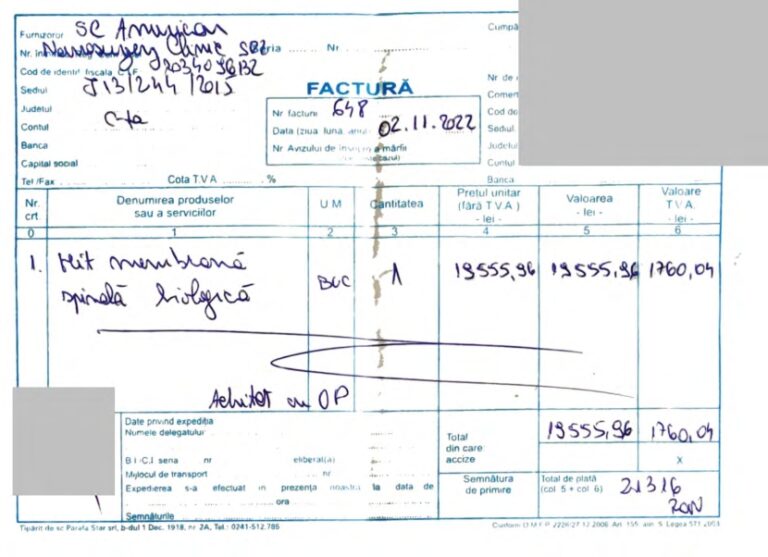 Furnizor SC American
Nr. în Neurosurgery Clinic SRL Seria ...... Nr. ......
Cod de identif. fiscala CIF 20340
Sediul J13/244/2015
Judetul
Contul C-ța
Banca
Capital social
Tel/Fax ...... Cota T.V.A. ...... %
FACTURĂ
Nr facturii 648
Data (ziua, luna, anul) 02.11.2022
Nr Avizului de însoțire a mărfii
Cumpă
Nr de
Comert
Cod de
Sediul
Judetul
Contul
Banca
Nr. crt. Denumirea produselor sau a serviciilor U M Cantitatea Pretul unitar (fără T.V.A.) - lei - Valoarea - lei - Valoare T.V.A. - lei -
0 1 2 3 4 5 6
1. Kit membrană BUC 1 19555,96 19555,96 1760,04
spinală biologică
Achitat cu OP
Date privind expediția
Numele delegatului
B.I-C.I seria nr eliberat(ă)
Mijlocul de transport nr.
Expedierea s-a efectuat in prezența noastra la data de
ora
Semnăturile
Total din care: accize 19555,96 1760,04
x
Semnătura de primire
Total de plată (col 5 + col 6) 21316
RON
Tipărit de sc Parafa Star srl, b-dul 1 Dec. 1918, nr 2A, Tel.: 0241-512.786
Conform O.M.F.P. 2226/27.12.2006 Art. 155 alin. 5 Legea 571.2003